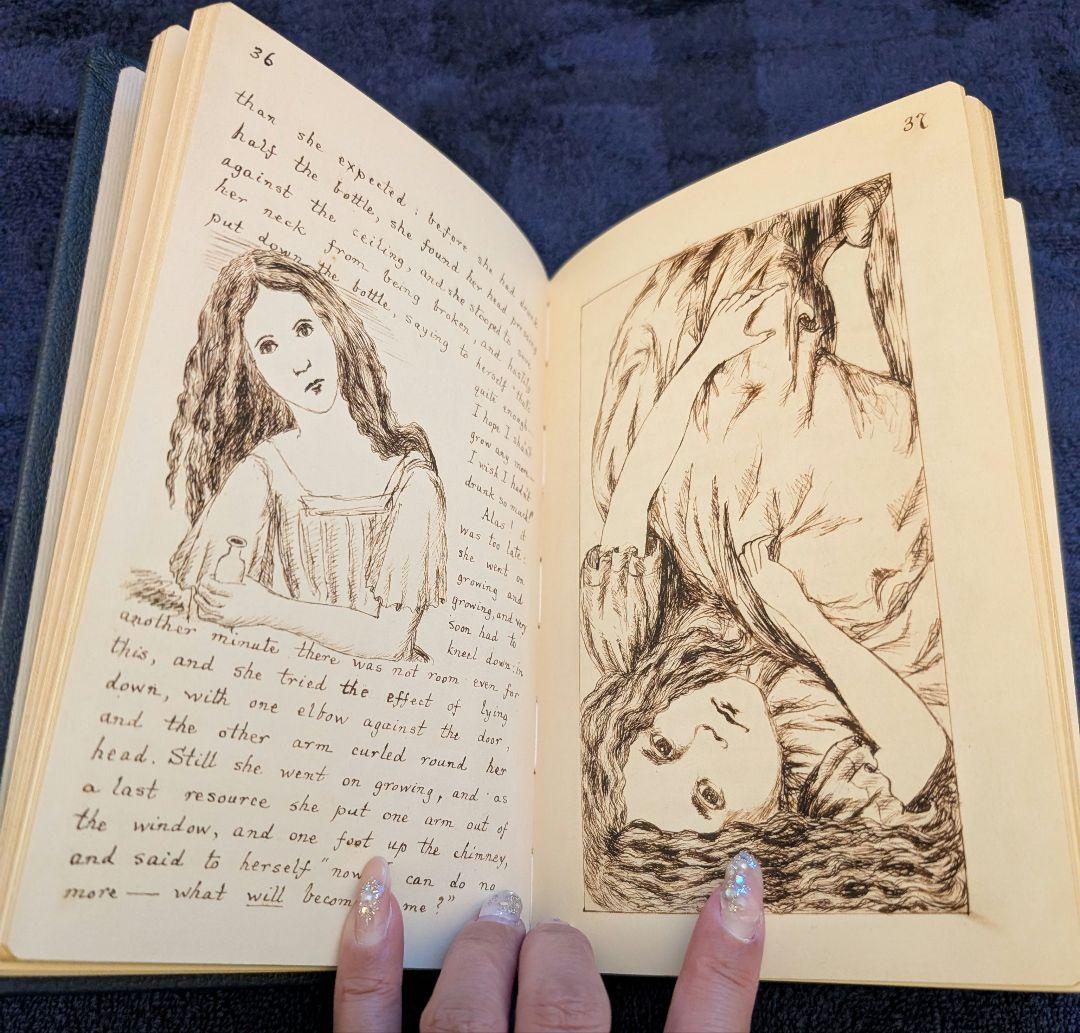 36
than she expected : before she had drunk
half the bottle, she found her head pressing
against the ceiling, and she stooped to save
her neck from being broken, and hastily
put down the bottle, saying to herself "that's
quite enough—
I hope I shan't
grow any more—
I wish I hadn't
drunk so much!"
Alas! it
was too late :
she went on
growing and
growing, and very
soon had to
kneel down : in
another minute there was not room even for
this, and she tried the effect of lying
down, with one elbow against the door,
and the other arm curled round her
head. Still she went on growing, and as
a last resource she put one arm out of
the window, and one foot up the chimney,
and said to herself "now can do no
more — what will becom me ?"
37